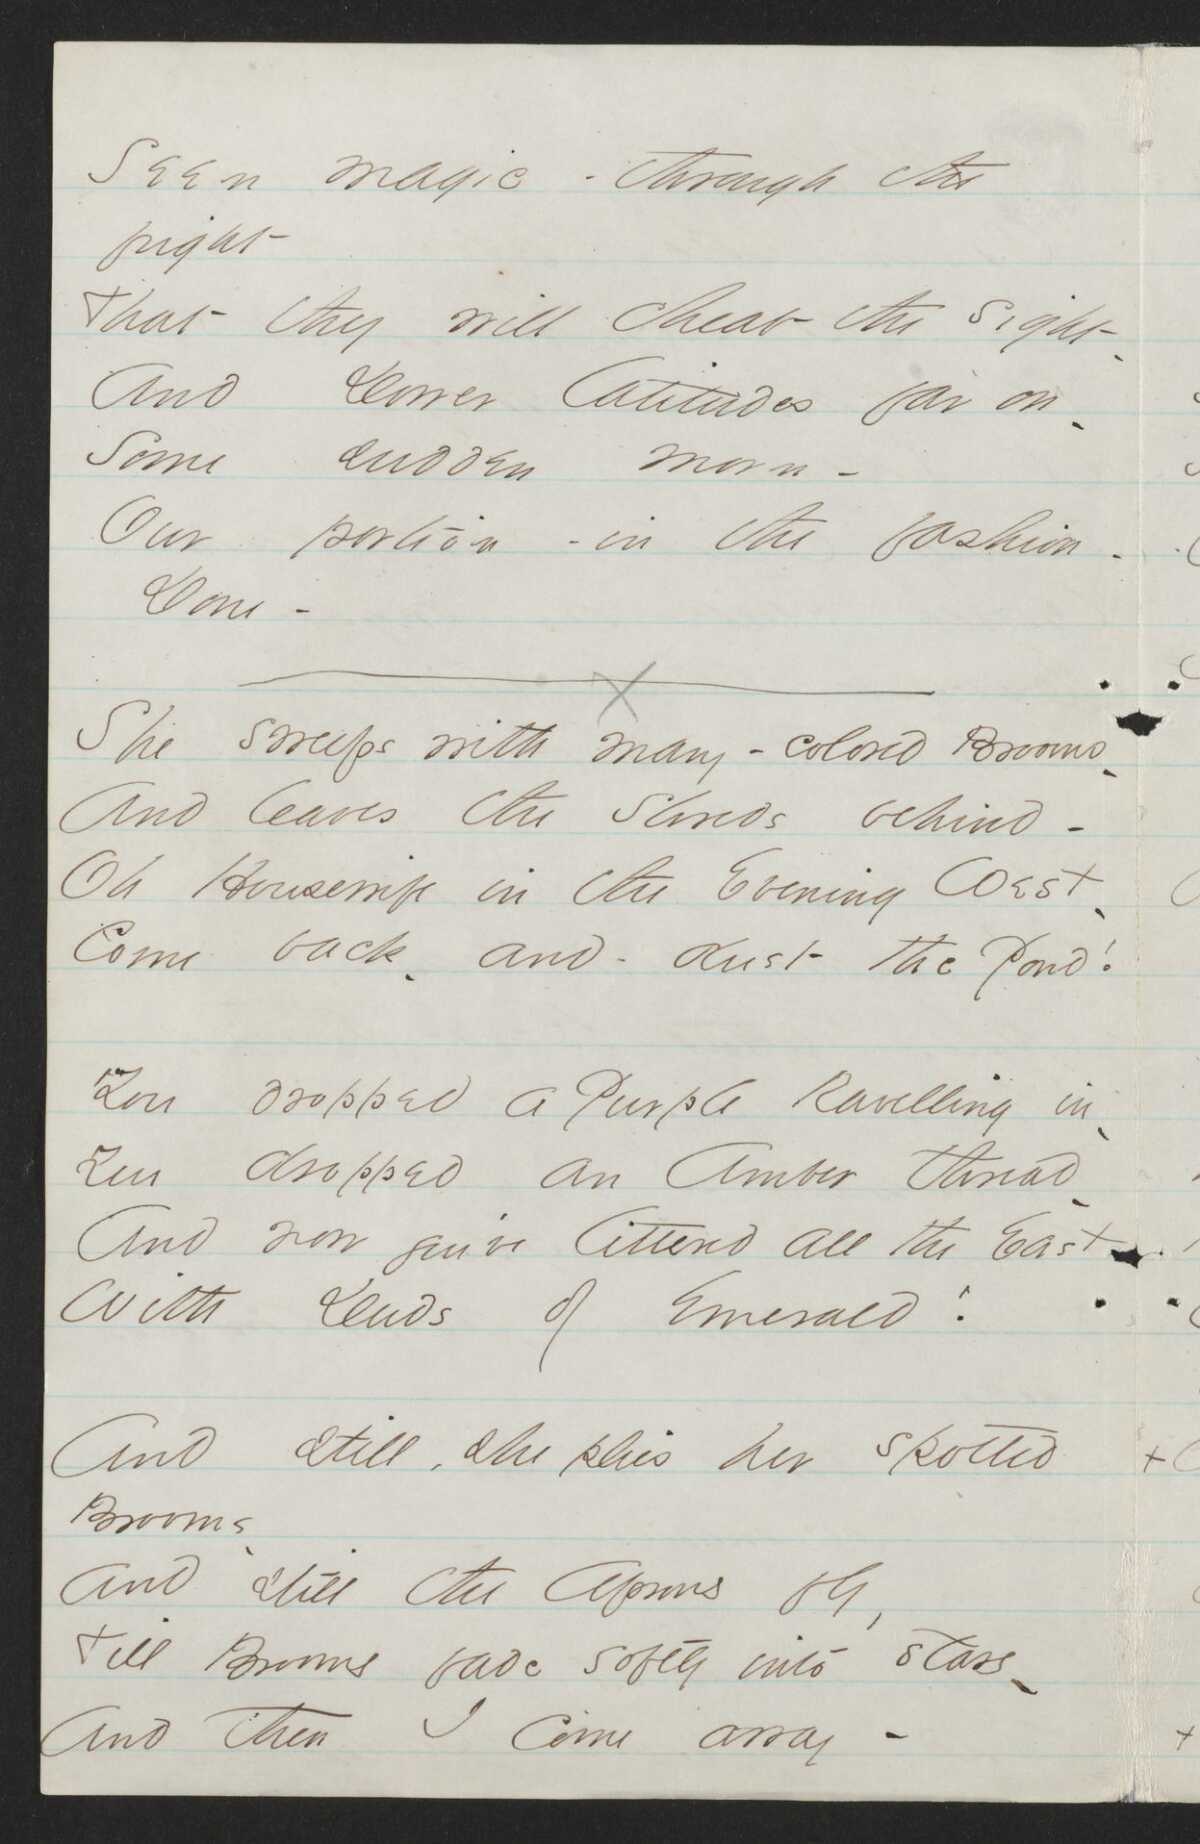 Seem magic - through the
fright
That they will cheat the sight -
And Lower Latitudes far on -
Some sudden morn -
Our portion - in the fashion -
Done -
She sweeps with many-colored Brooms -
And leaves the Shreds behind -
Oh Housewife in the Evening West -
Come back - and - dust the Pond!
You dropped a Purple Ravelling in -
You dropped an Amber thread -
And now you've littered all the East -
With Duds of Emerald!
And still, she plies her spotted
Brooms -
And still the Aprons fly,
Till Brooms fade softly into stars -
And then I come away -